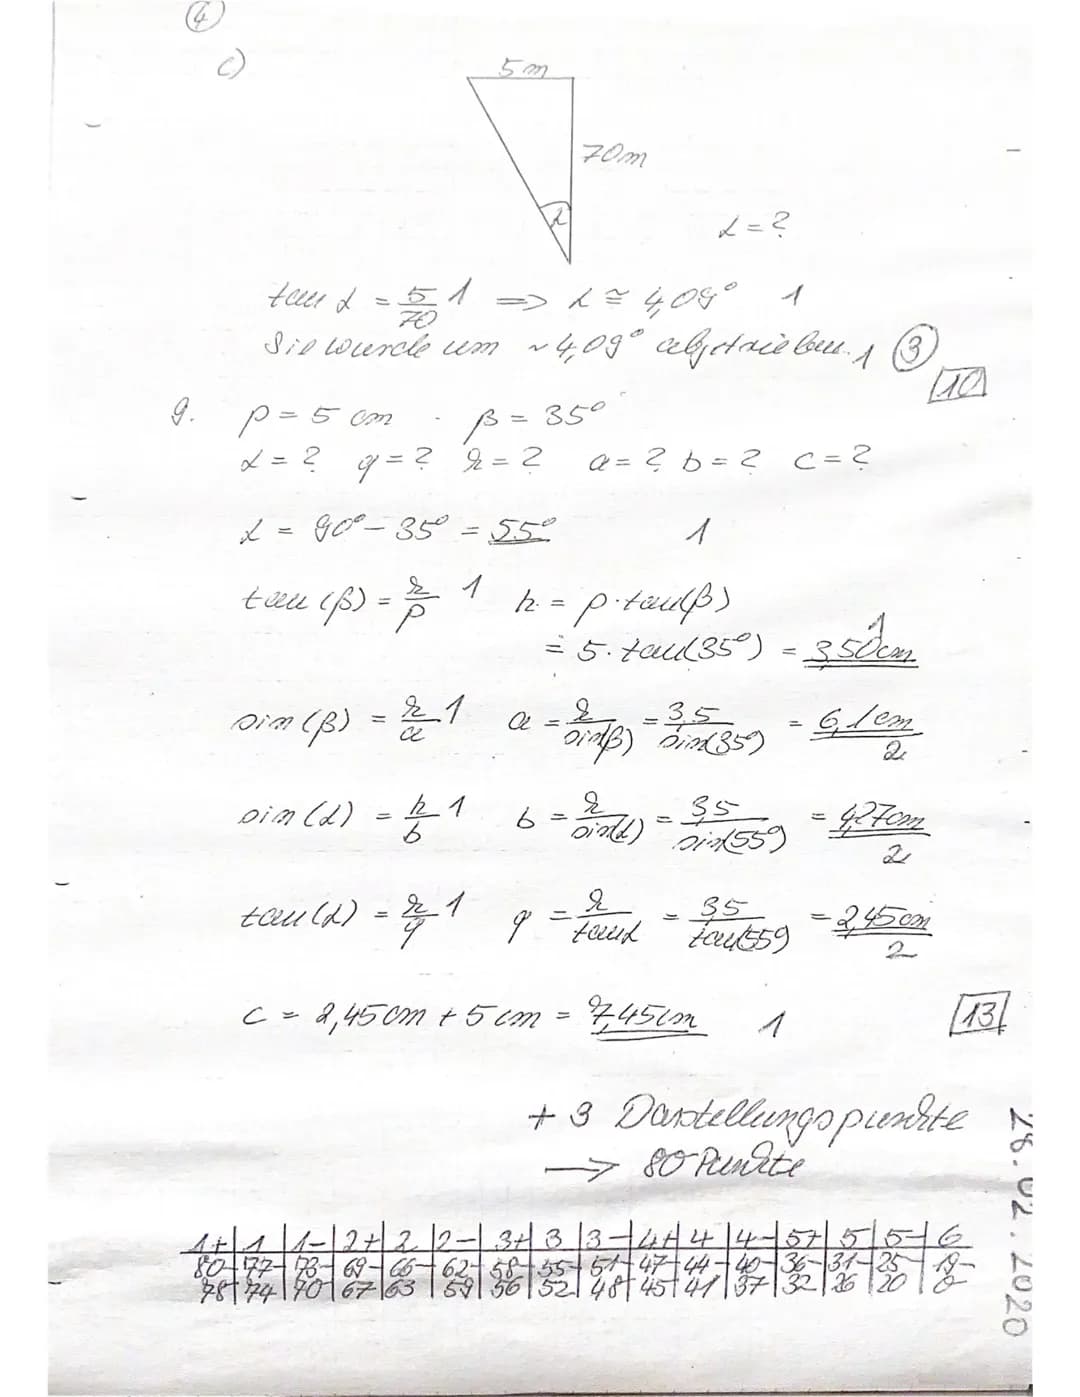 4
c)
5 m
70 m
α
α = ?
tan α = 5/70 1 => α ≅ 4,09° 1
Sie wurde um ~ 4,09° abgetrieben. 1 3
10
9. p = 5 cm β = 35°
α = ? q = ? h = ? a = ? b = ? c = ?
α = 90° - 35° = 55° 1
tan (β) = h/p 1 h = p · tan(β)
= 5 · tan(35°) = 3,50 cm 1
sin (β) = h/a 1 a = h/sin(β) = 3,5/sin(35°) = 6,1 cm
2
sin (α) = h/b 1 b = h/sin(α) = 3,5/sin(55°) = 4,27 cm
2
tan (α) = h/q 1 q = h/tan α = 3,5/tan(55°) = 2,45 cm
2
c = 2,45 cm + 5 cm = 7,45 cm 1 13
+ 3 Darstellungspunkte
→ 80 Punkte
1+ | 1 | 1- | 2+ | 2 | 2- | 3+ | 3 | 3- | 4+ | 4 | 4- | 5+ | 5 | 5- | 6
80- | 77- | 73- | 69- | 66- | 62- | 58- | 55- | 51- | 47- | 44- | 40- | 36- | 31- | 25- | 19-
78 | 74 | 70 | 67 | 63 | 59 | 56 | 52 | 48 | 45 | 41 | 37 | 32 | 26 | 20 | 0
28.02.2020